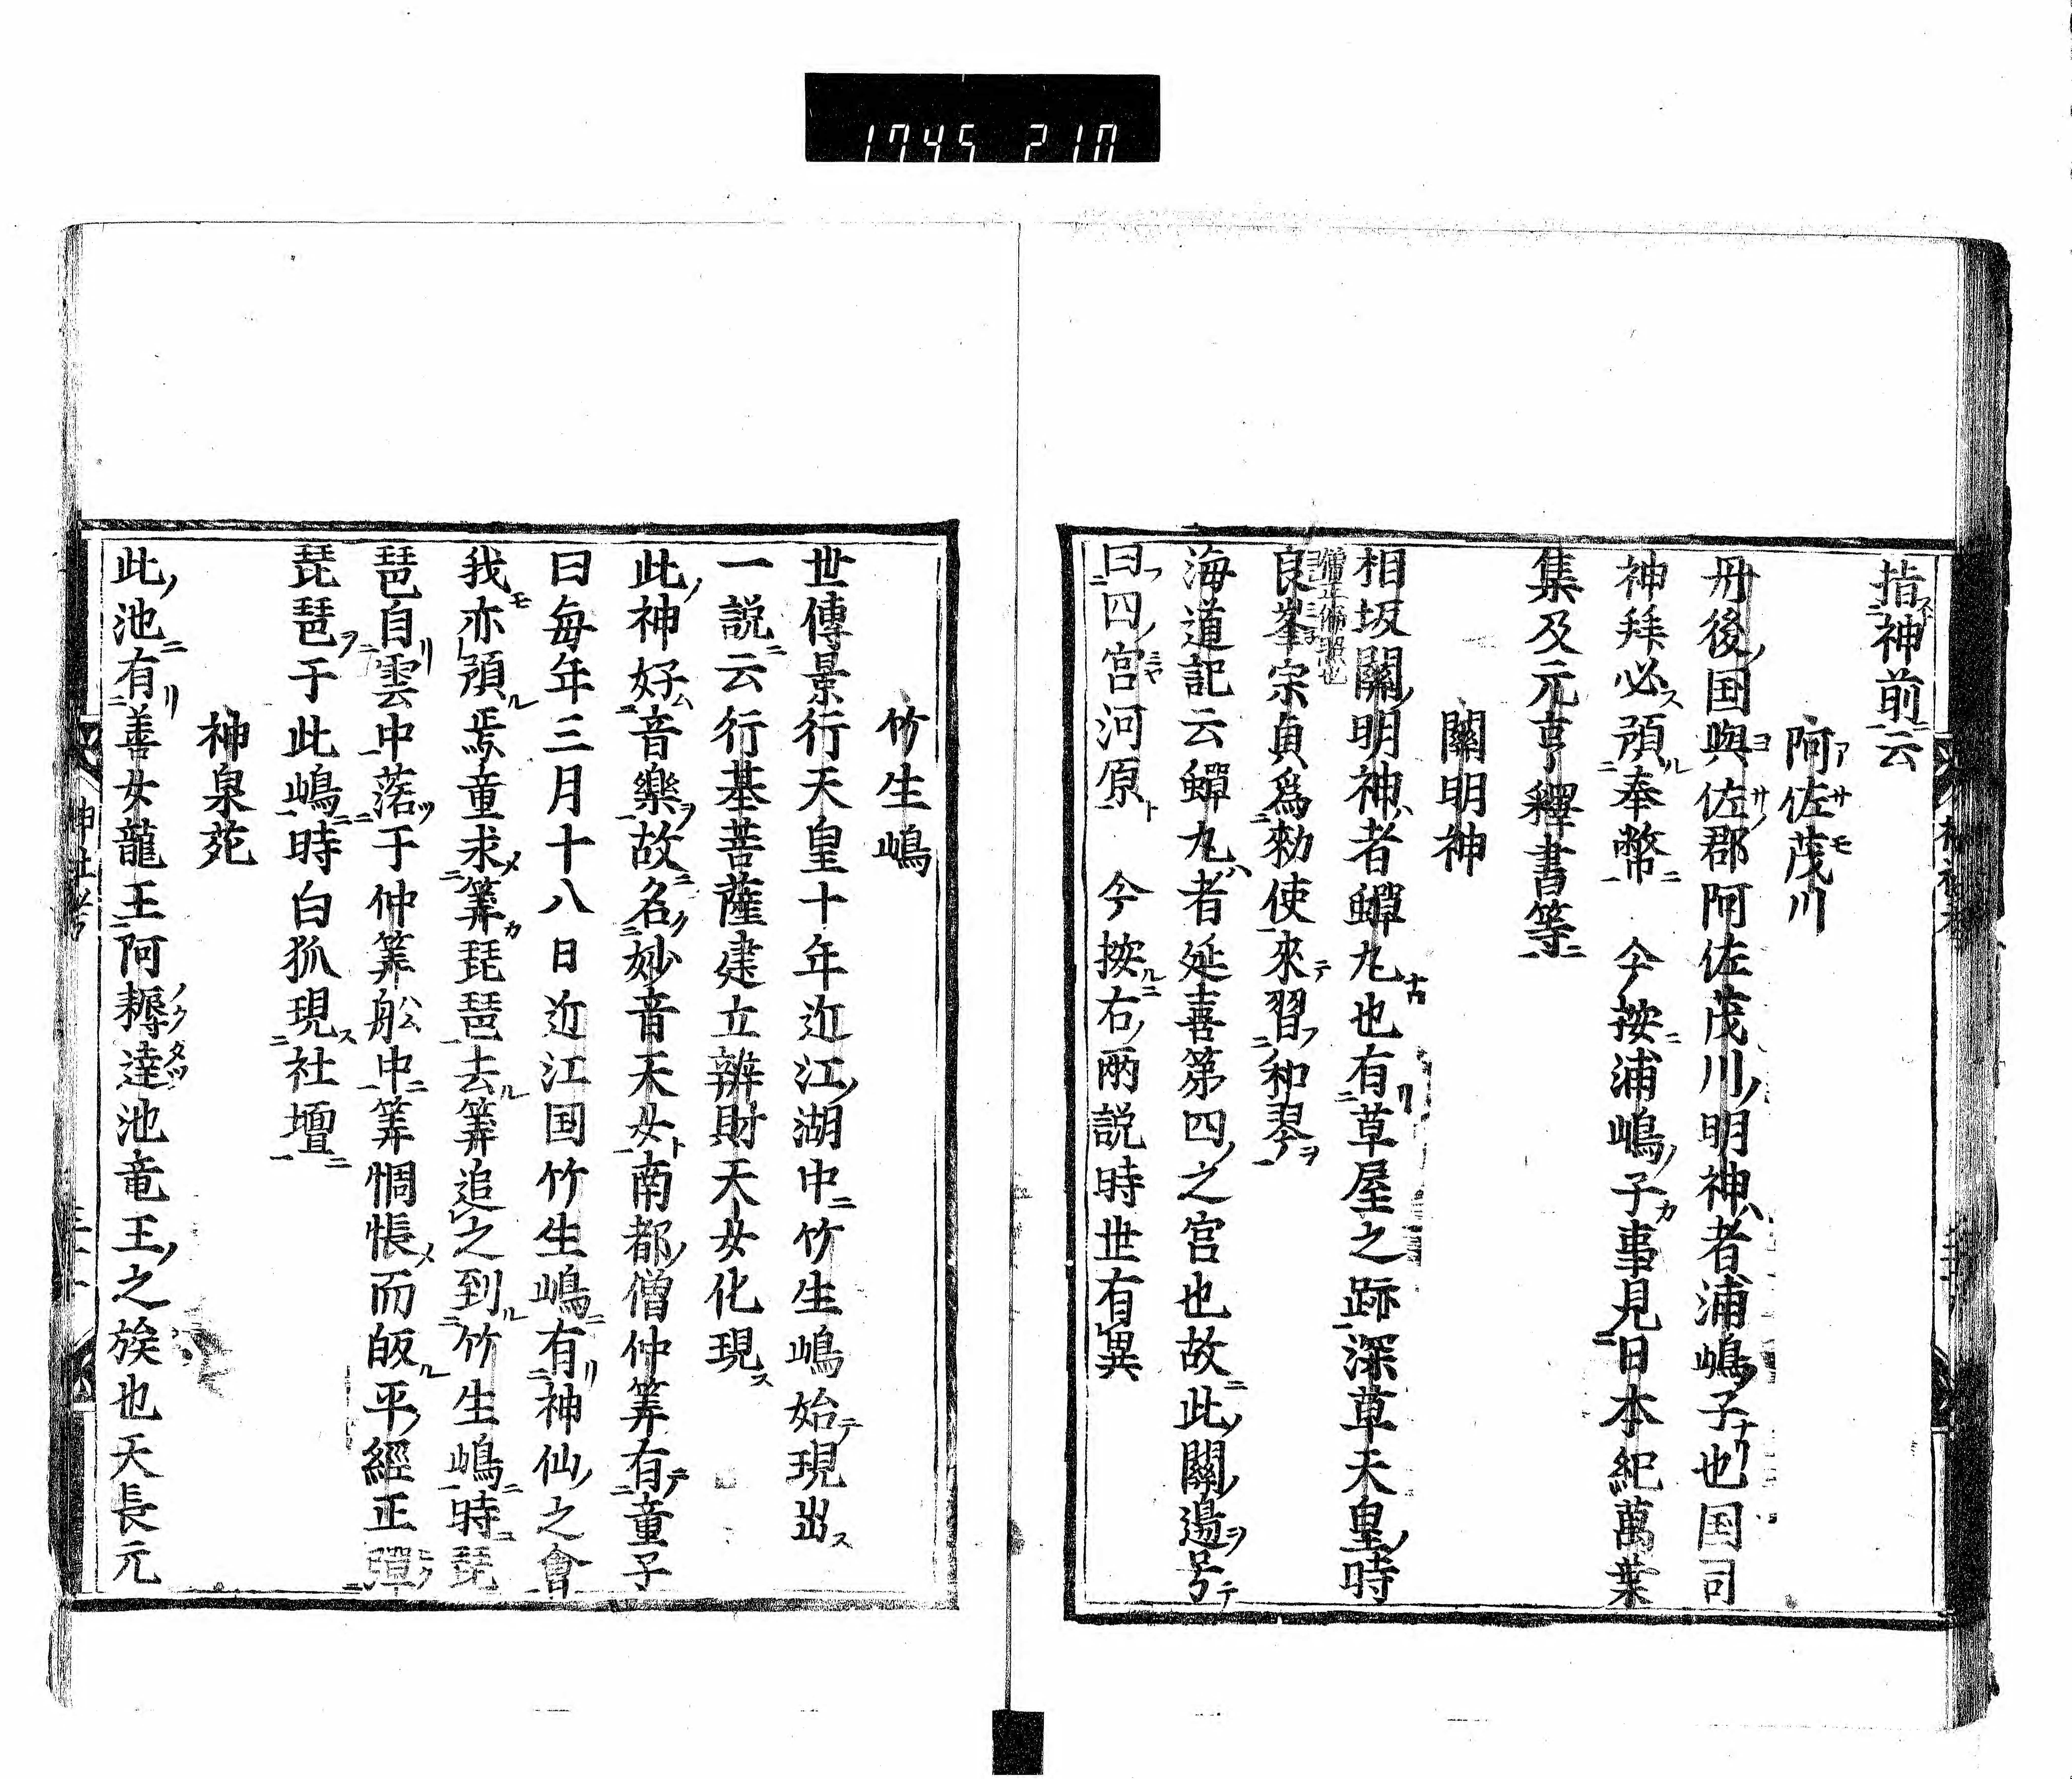 1745 210
指神前云
阿佐茂川
丹後国與佐郡阿佐茂川明神者浦嶋子也国司
神拜必預奉幣 今按浦嶋子事見日本紀萬葉
集及元亨釋書等
關明神
相坂關明神者蟬丸也有草屋之跡深草天皇時
良峯宗貞爲勅使來習和琴
海道記云蟬丸者延喜第四之宮也故此關邉号
曰四宮河原 今按右兩説時世有異
竹生嶋
世傳景行天皇十年近江湖中竹生嶋始現出
一説云行基菩薩建立辨財天女化現
此神好音樂故名妙音天女南都僧仲筭有童子
曰毎年三月十八日近江国竹生嶋有神仙之會
我亦預焉童求筭琵琶去筭追之到竹生嶋時琵
琶自雲中落于仲筭舩中筭惆悵而皈平經正彈
琵琶于此嶋時白狐現社壇
神泉苑
此池有善女龍王阿耨達池竜王之族也天長元
神社考